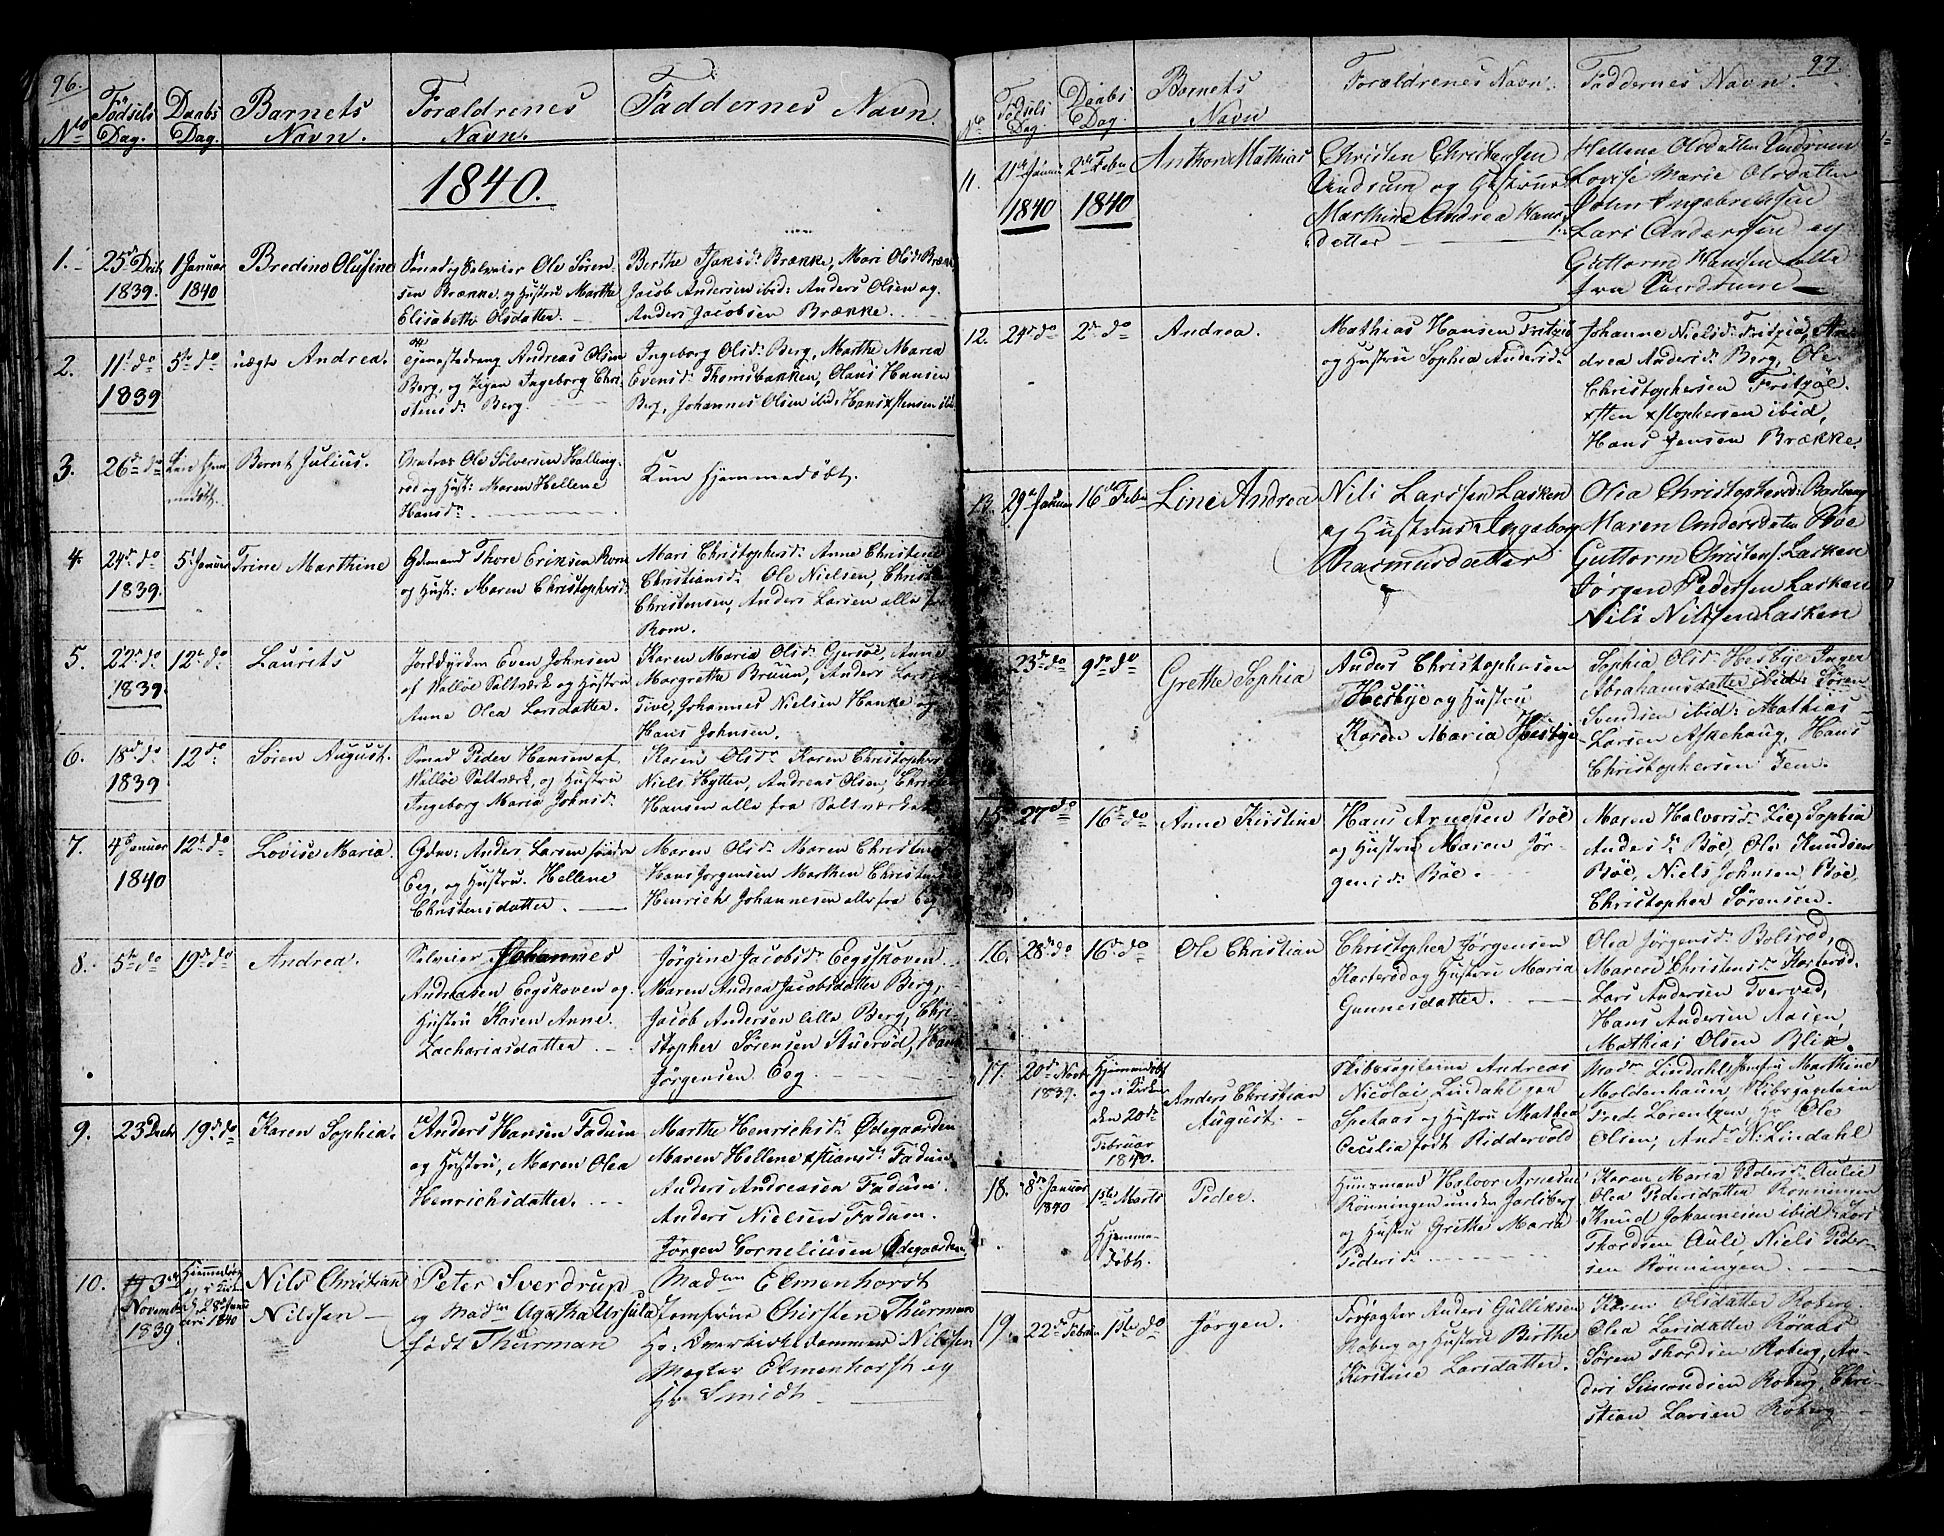 96.
No
Fødsels
Dag.
Daabs
Dag.
Barnets
Navn.
Forældrenes
Navn.
Faddernes Navn.
1840.
1.
25d Decb
1839.
1 Januar
1840
Bredine Olufine
Ole Søren-
sen Brække og Hustru Marthe
Elisabeth Olsdatter.
Berthe Isaksd: Brække, Mari Olsd: Brække
Jacob Andersen ibid: Anders Olsen og
Anders Jacobsen Brække.
2.
11t do
1839
5te do
uægte Andrea.
Andreas Olsen
Berg, og Pigen Ingeborg Chri-
stensd: Berg.
Ingeborg Olsd: Berg, Marthe Maria
Evensd: Thomsbakken, Olaus Hansen
Berg, Johannes Olsen ibid: Hans Xstensen ibd.
3.
26d do
Hjem
medøbt.
Bernt Julius.
Matros Ole Sølversen Halling-
rød og Hust: Maren Hellene
Hansdr
Kun Hjemmedøbt.
4.
24d do
1839.
5t Januar
Trine Marthine
Gdmand Thore Eriksen Rom
og Hust: Maren Christophersd:
Mari Christophersd: Anne Christine
Christiansd: Ole Nielsen, Christen
Christensen, Anders Larsen alle fra
Rom.
5.
22d do
1839.
12t do
Laurits
Jorddyrker Even Johnsen
af Walløe Saltværk og Hustru
Anne Olea Larsdatter.
Karen Maria Olsd: Gjersøe, Anne
Margrethe Bruun, Anders Larsen
Tive, Johannes Nielsen Hanke og
Hans Johnsen.
6.
18d do
1839.
12 do
Søren August.
Smed Peder Hansen af
Walløe Saltværk, og Hustru
Ingeborg Maria Johnsd:
Karen Olsdr Karen Christophersd
Niels Hytten, Andreas Olsen, Christen
Hansen alle fra Saltværket
7.
4de Januar
1840
12t do
Lovise Maria.
Gdm: Anders Larsen søndre
Eeg, og Hustru Hellene
Christensdatter.
Maren Olsd: Maren Christensd
Hans Jørgensen Marthen Christensen
Henrich Johannesen alle fra Eeg
8.
5te do
19d do
Andrea.
Selveier Johannes
Andreasen Eegskoven og
Hustru Karen Anne
Zachariasdatter.
Jørgine Jacobsdr Eegsskoven
Maren Andrea Jacobsdatter Berg,
Jacob Andersen lille Berg, Chri-
stopher Sørensen Stuerød, Hans
Jørgensen Eeg.
9.
23 Decbr
19d do
Karen Sophia.
Anders Hansen Fadum
og Hustru, Maren Olea
Henrichsdatter.
Marthe Henrichsd: Ødegaarden
Maren Hellene Xstiansd: Fadum
Anders Andreasen Fadum.
Anders Nielsen Fadum.
Jørgen Corneliusen Ødegaarden.
10.
3de
November
1839
Hjemmedøbt
og i Kirken
d 28de Janu
ari 1840
Nils Christian
Nilssen
Peter Sverdrup
og Madm Agatha Ursula
født Thurman
Madm Elmenhorst
Jomfrue Chirsten Thurman
Hr: Overkirkedommer Nilssen
Mægler Elmenhorst og
Hr Smidt
97.
No
Fødsels
Dag
Daabs
Dag.
Barnets
Navn
Forældrenes Navn.
Faddernes Navn.
11.
21de Januar
1840
2de Febru
1840
Anthon Mathias
Christen Christensen
Undrum og Hustrue
Marthine Andrea Hans-
datter
Hellene Olsdatter Undrum
Lovise Marie Olsdatter
John Ingebretsen
Lars Andersen og
Guttorm Hansen alle
fra Undrum
12.
24de do
2de do
Andrea.
Mathias Hansen Fritzøe
og Hustru Sophia Andersd:
Johanne Nielsd: Fritzøe, An-
drea Andersd: Berg, Ole
Christophersen Fritzøe.
Xsten Xstophersen ibid,
Hans Jensen Brække.
13.
29de Januar
16de Febr
Line Andrea
Nils Larssen Lasken
og Hustrue Ingeborg
Rasmusdatter
Olea Christophersd:
Maren Andersdatter Bøe
Guttorm Christens: Lasken
Jørgen Pedersen Lasken
Nils Nilssen Lasken
23de do
9de do
Grethe Sophia
Anders Christophersen
Hesbye og Hustru
Karen Maria Hesbye
Sophia Olsd: Hesbye Inger
Abrahamsdatter ibid: Søren
Svendsen ibid: Mathias
Larsen Askehaug, Hans
Christophersen Fen.
15.
27de do
16de do
Anne Kirstine
Hans Arnesen Bøe
og Hustru Maren Jør-
gensd: Bøe.
Maren Halvorsd: Lie, Sophia
Andersd: Bøe, Ole Knudsen
Bøe, Niels Johnsen Bøe,
Christopher Sørensen.
16.
28de do
16de do
Ole Christian
Christopher Jørgensen
Kosterød og Hustru Maria
Gunnesdatter.
Olea Jørgensd: Bolsrød,
Maren Christensd: Kosterød.
Lars Andersen Tverved,
Hans Andersen Aasen,
Mathias Olsen Blix.
17.
20de Novb
1839.
Hjemmedøbt
og i Kirken
den 20de
Februar
1840.
Anders Christian
August.
Skibscapitaine Andreas
Nicolai Lindahl
og Hustru Mathea
Cecilia født Riddervold
Madm Lindahl, Jomfru Marthine
Moldenhauer, Skibscapitain
Fred: Lorentzen, Hr Ole
Olsen, Andr N: Lindahl
18.
8de Januar
1840
1ste Marts
Hjemme-
døbt.
Peder.
Huusmand Halvor Arnesen
Rønningen under Jarlsberg
og Hustru Grethe Maria
Pedersd:
Karen Maria Pedersd: Aulie
Olea Pedersdatter Rønningen
Knud Johannesen ibid: Lars
Thordsen Auli, Niels Peder-
sen Rønningen.
19.
22de Februar
1ste do
Jørgen.
Forpagter Anders Gulliksen
Roberg og Hustru Berthe
Kirstine Larsdatter.
Karen Olsdatter Roberg.
Olea Larsdatter Roraas
Søren Thordsen Roberg, An-
ders Simondsen Roberg, Chri-
stian Larsen Roberg